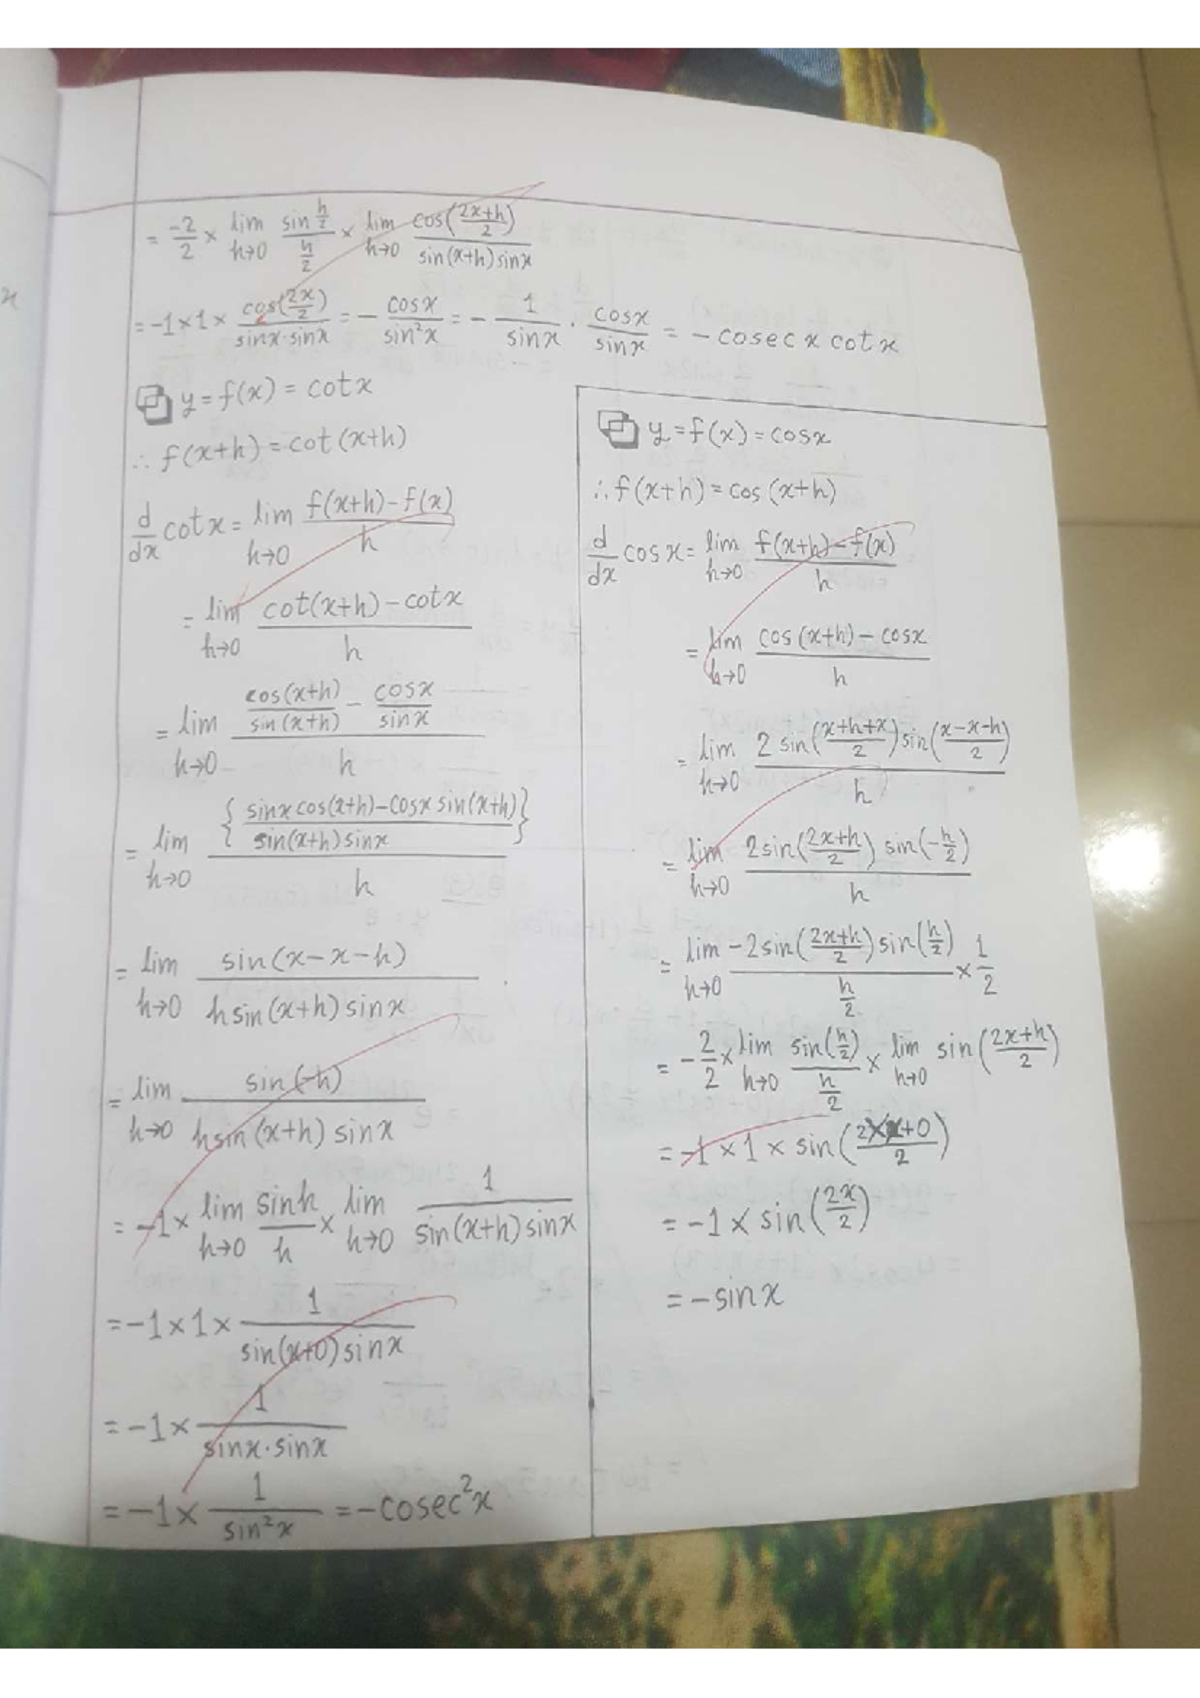 = -2/2 × lim h→0 sin h/2 / h/2 × lim h→0 cos(2x+h/2) / sin(x+h) sinx
= -1×1× cos(2x/2) / sinx·sinx = - cosx/sin²x = - 1/sinx · cosx/sinx = - cosec x cot x
y = f(x) = cotx
∴ f(x+h) = cot (x+h)
d/dx cotx = lim h→0 f(x+h)-f(x) / h
= lim h→0 cot(x+h)-cotx / h
= lim h→0 cos(x+h)/sin(x+h) - cosx/sinx / h
= lim h→0 {sinx cos(x+h)-cosx sin(x+h) / sin(x+h) sinx} / h
= lim h→0 sin(x-x-h) / h sin(x+h) sinx
= lim h→0 sin(-h) / h sin(x+h) sinx
= -1× lim h→0 sinh/h × lim h→0 1 / sin(x+h) sinx
= -1×1× 1 / sin(x+0) sinx
= -1× 1 / sinx·sinx
= -1× 1/sin²x = -cosec²x
y = f(x) = cosx
∴ f(x+h) = cos (x+h)
d/dx cosx = lim h→0 f(x+h)-f(x) / h
= lim h→0 cos(x+h)-cosx / h
= lim h→0 2 sin(x+h+x/2) sin(x-x-h/2) / h
= lim h→0 2sin(2x+h/2) sin(-h/2) / h
= lim h→0 -2sin(2x+h/2) sin(h/2) / h/2 × 1/2
= -2/2 × lim h→0 sin(h/2) / h/2 × lim h→0 sin(2x+h/2)
= -1 × 1 × sin(2×x+0/2)
= -1 × sin(2x/2)
= - sinx